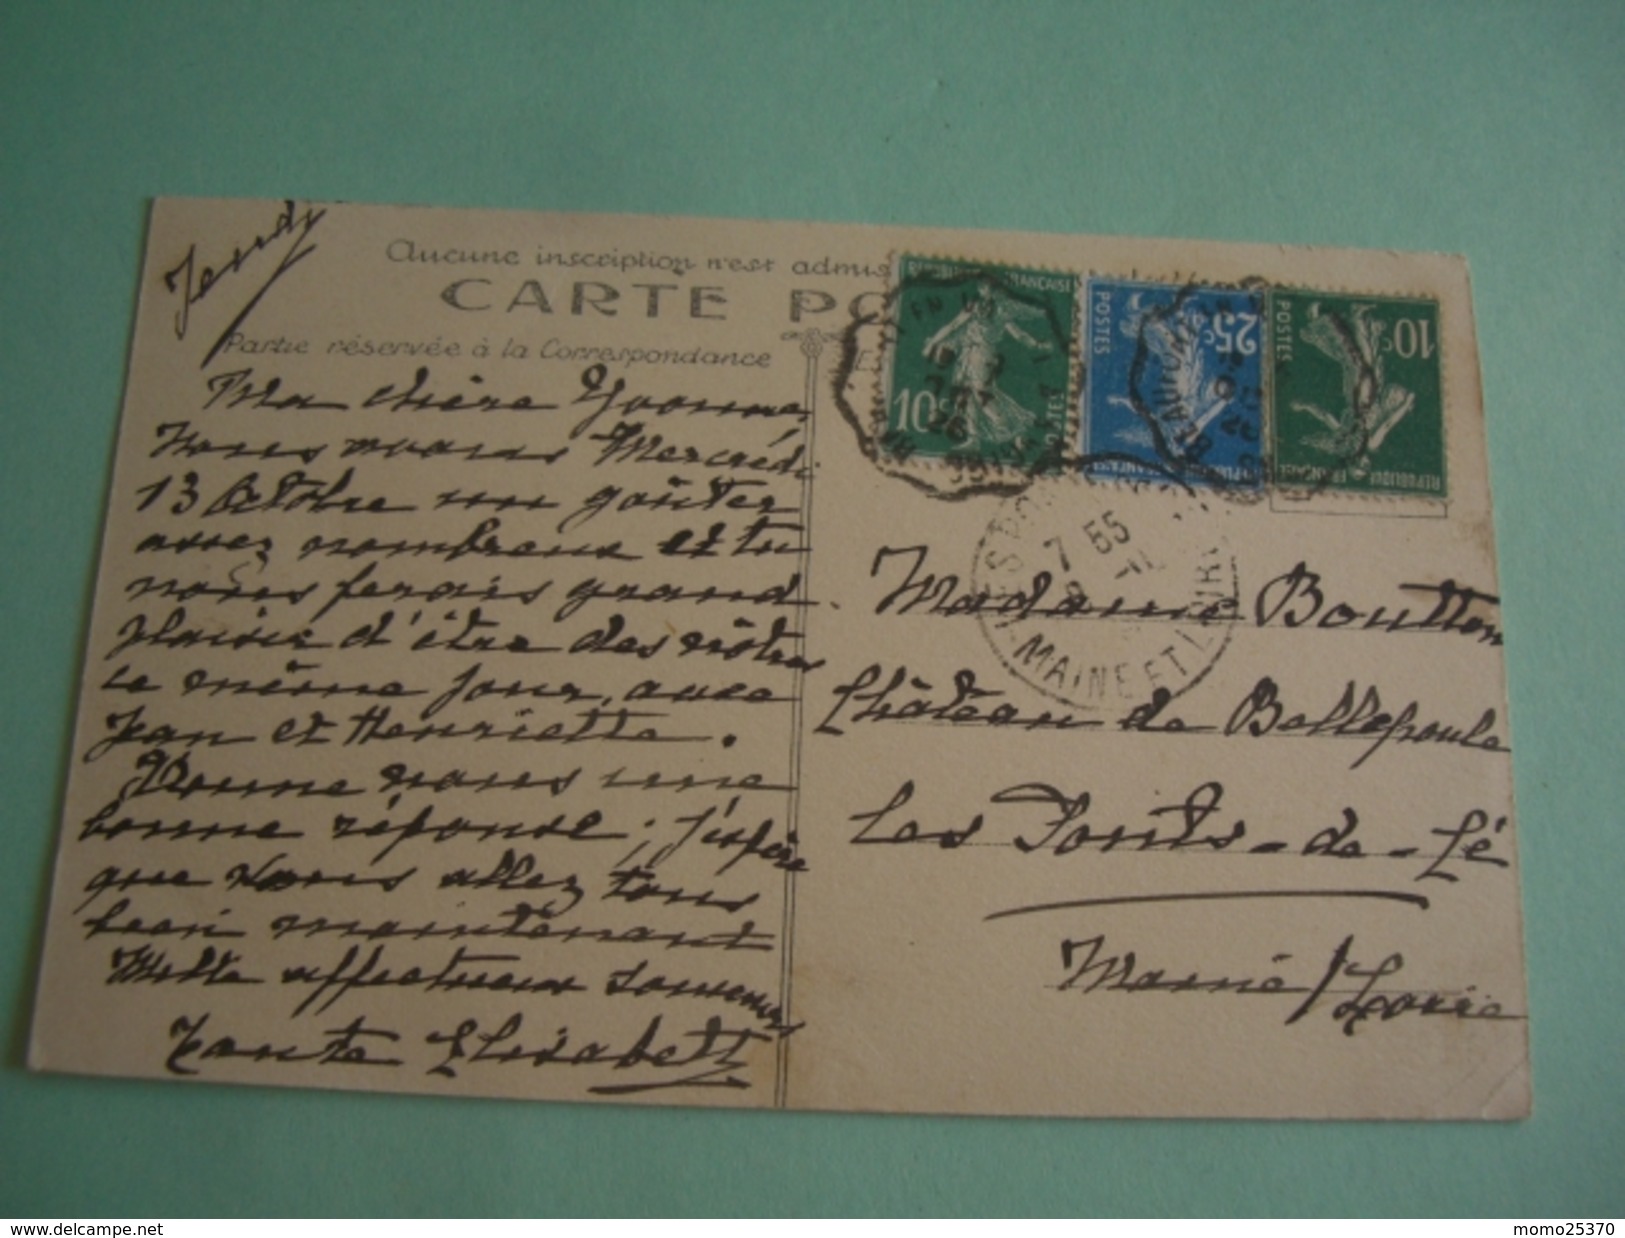 Jeudi
Aucune inscription n'est admis
CARTE PO
Partie réservée à la Correspondance
Ma chère Yvonne,
Nous avons Mercredi
13 Octobre un goûter
assez nombreux et tu
nous ferais grand
plaisir d'être des nôtres
ce même jour, avec
Jean et Henriette.
Donne nous une
bonne réponse, j'espère
que vous allez tous
bien maintenant
Mille affectueux souvenirs
Tante Elisabeth
FRANÇAISE
10c
POSTES
25c
POSTES
REPUBLIQUE FRANÇAISE
10c
POSTES
REPUBLIQUE FRANÇAISE
7 55
MAINE ET LOIRE
Madame Boutton
Château de Bellepoule
Les Ponts-de-Cé
Maine/Loire
http://www.delcampe.net
momo25370